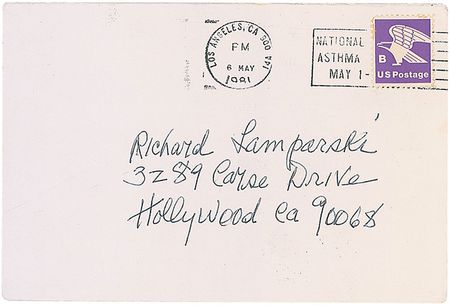 LOS ANGELES, CA 900
PM
6 MAY
1981
NATIONAL
ASTHMA
MAY 1-
B
US Postage
Richard Lamparski
3289 Carse Drive
Hollywood Ca 90068